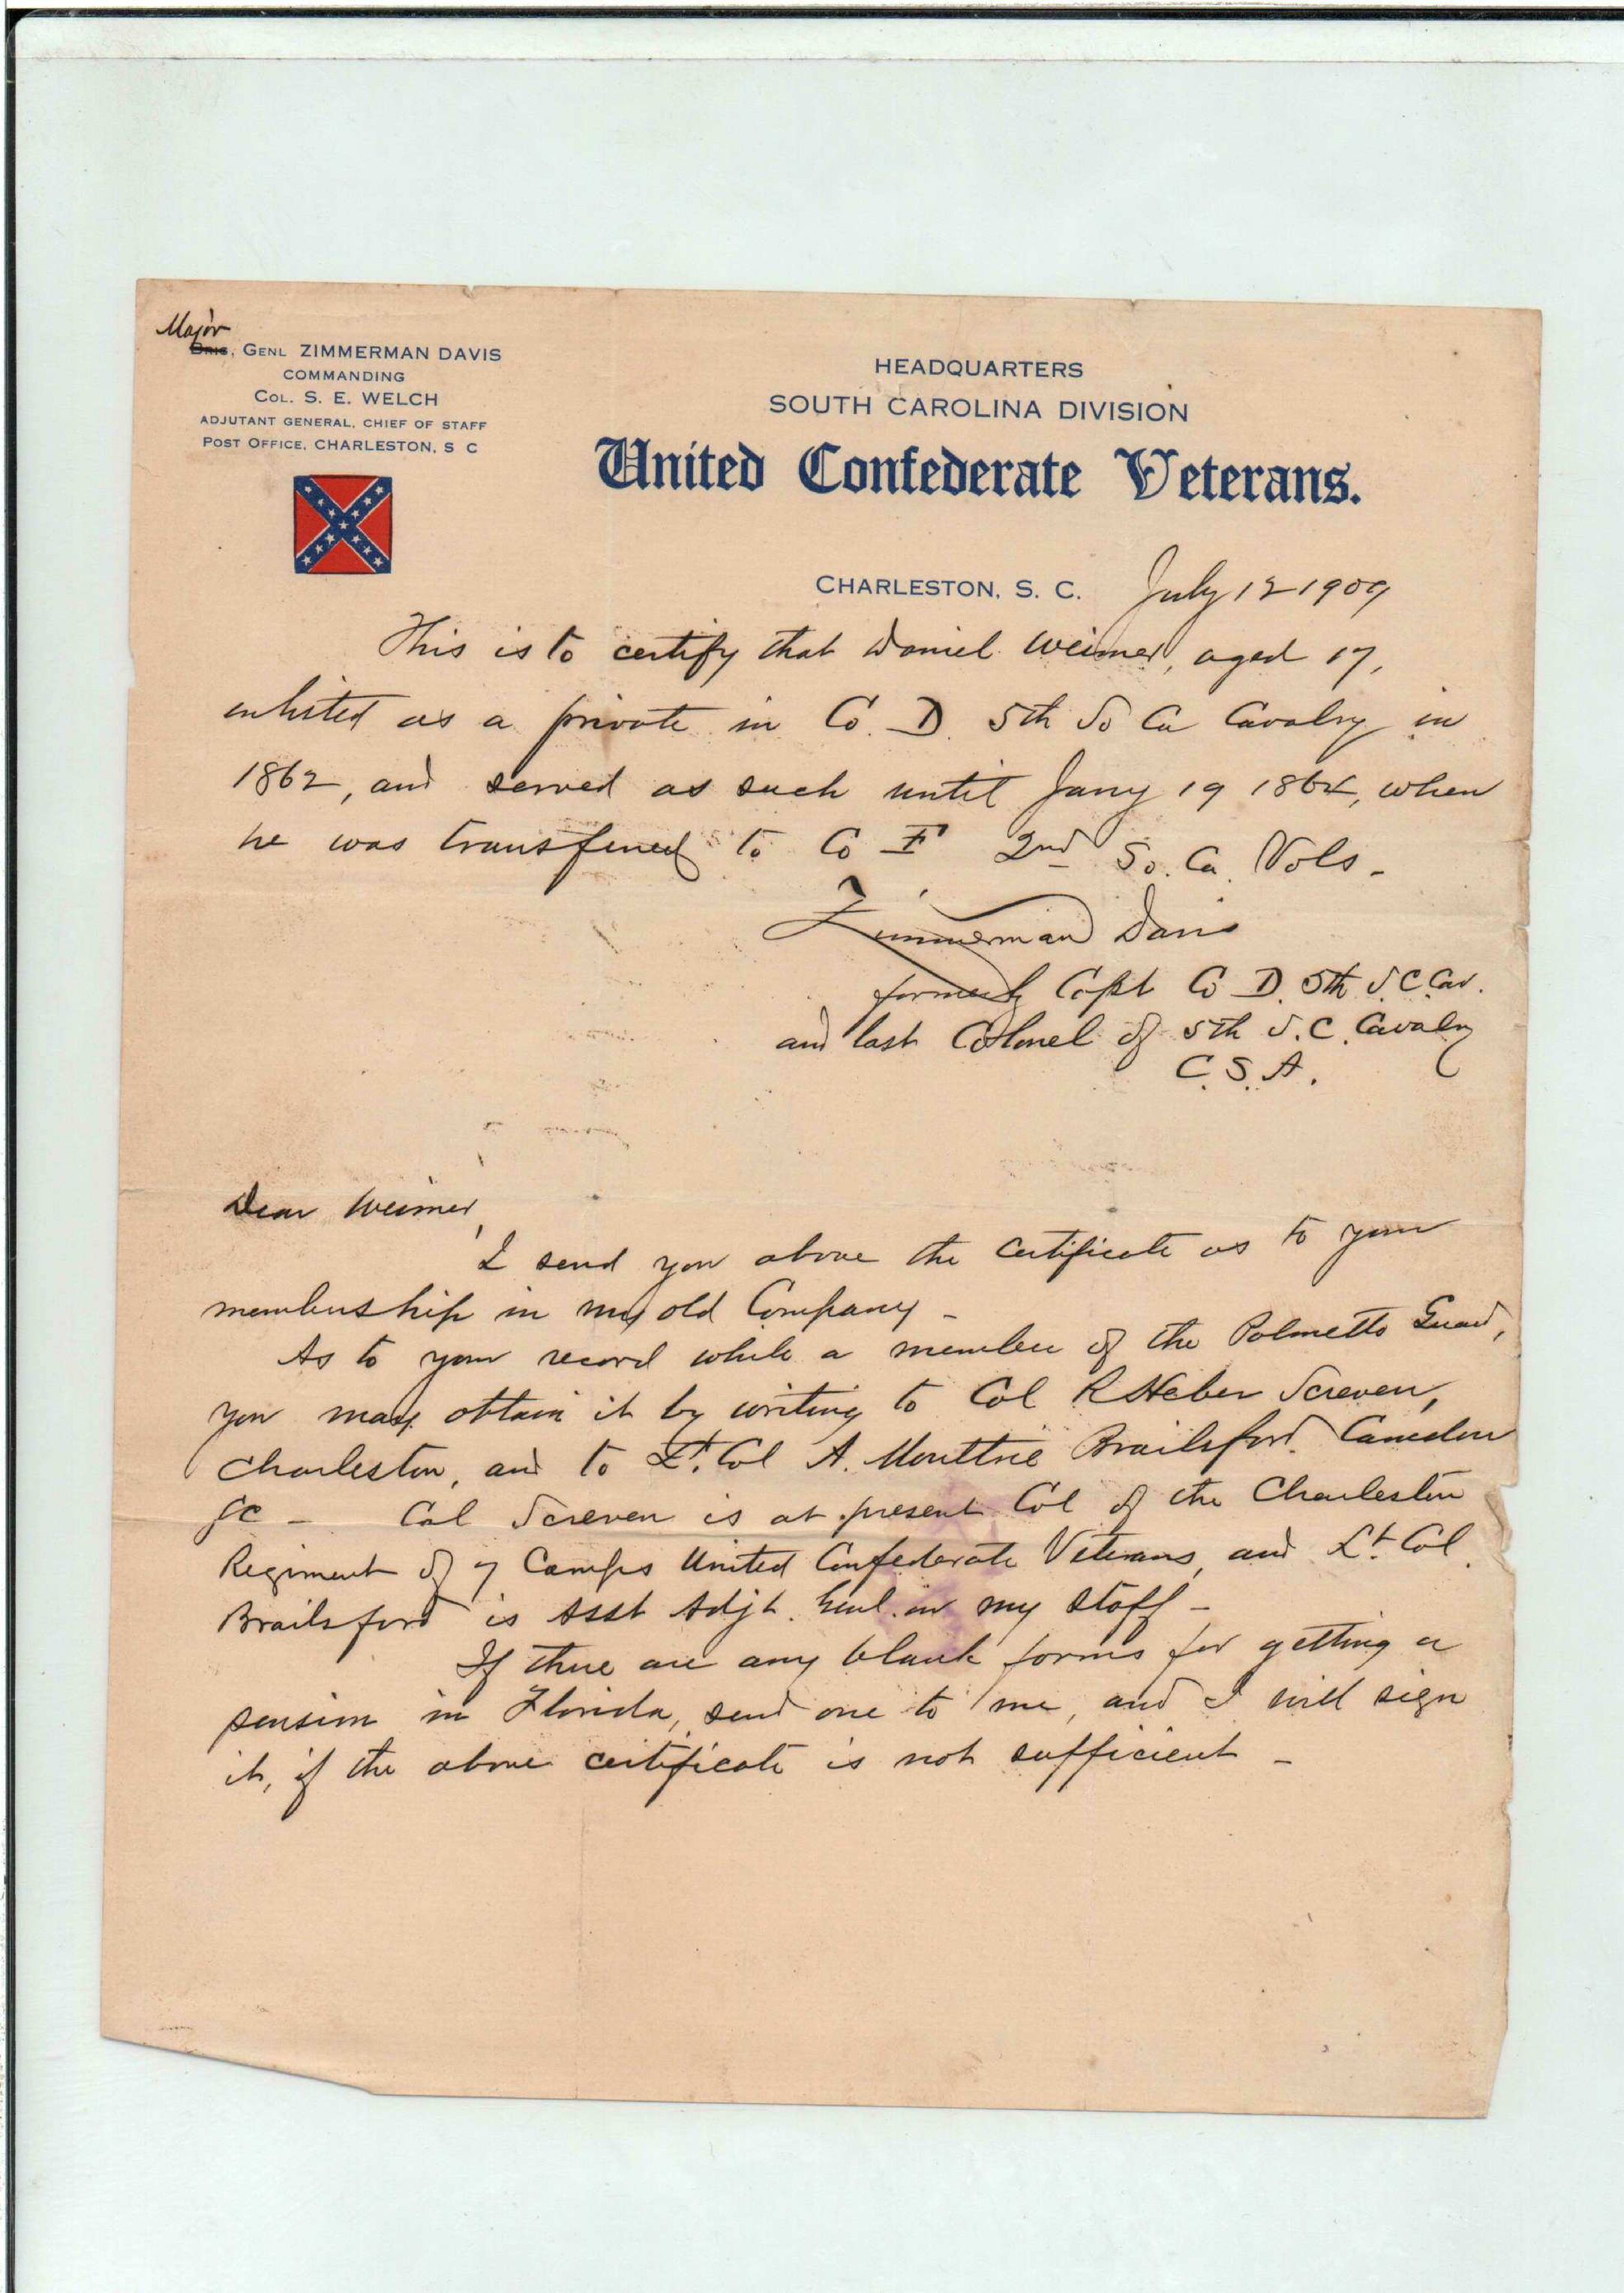 Major
Brig, Genl ZIMMERMAN DAVIS
COMMANDING
Col. S. E. WELCH
ADJUTANT GENERAL, CHIEF OF STAFF
Post Office, CHARLESTON, S C
HEADQUARTERS
SOUTH CAROLINA DIVISION
United Confederate Veterans.
CHARLESTON, S. C. July 12 1909
This is to certify that Daniel Weimer, aged 17,
enlisted as a private in Co. D. 5th So Ca Cavalry in
1862, and served as such until Jany 19 1864, when
he was transferred to Co F 2nd So. Ca. Vols.-
Zimmerman Davis
formerly Capt Co D. 5th S.C. Cav.
and last Colonel of 5th S.C. Cavalry
C.S.A.
Dear Weimer,
I send you above the certificate as to your
membership in my old Company -
As to your record while a member of the Palmetto Guard,
you may obtain it by writing to Col R Heber Screven,
Charleston, and to Lt. Col A. Moultrie Brailsford. Camden
SC - Col Screven is at present Col of the Charleston
Regiment of 7 Camps United Confederate Veterans, and Lt Col.
Brailsford is Asst Adjt. Genl. on my staff -
If there are any blank forms for getting a
pension in Florida, send one to me, and I will sign
it, if the above certificate is not sufficient -